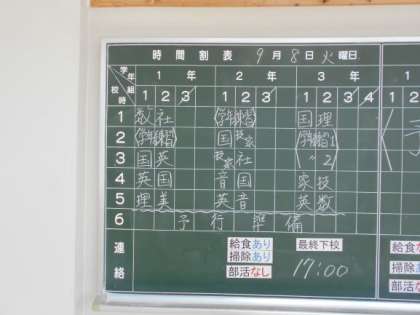 時間割表 9月8日火曜日
学年 組 校時 1年 2年 3年
1 2 3 1 2 3 1 2 3 4
1 数 社 学年練習 国 理
2 学年練習 国 技家 学年練習1
3 国 英 技家 社 〃 2
4 英 国 音 国 家 技
5 理 美 英 音 英 数
6 予行準備
連絡
給食あり 最終下校
掃除あり 17:00
部活なし
給食
掃除
部活